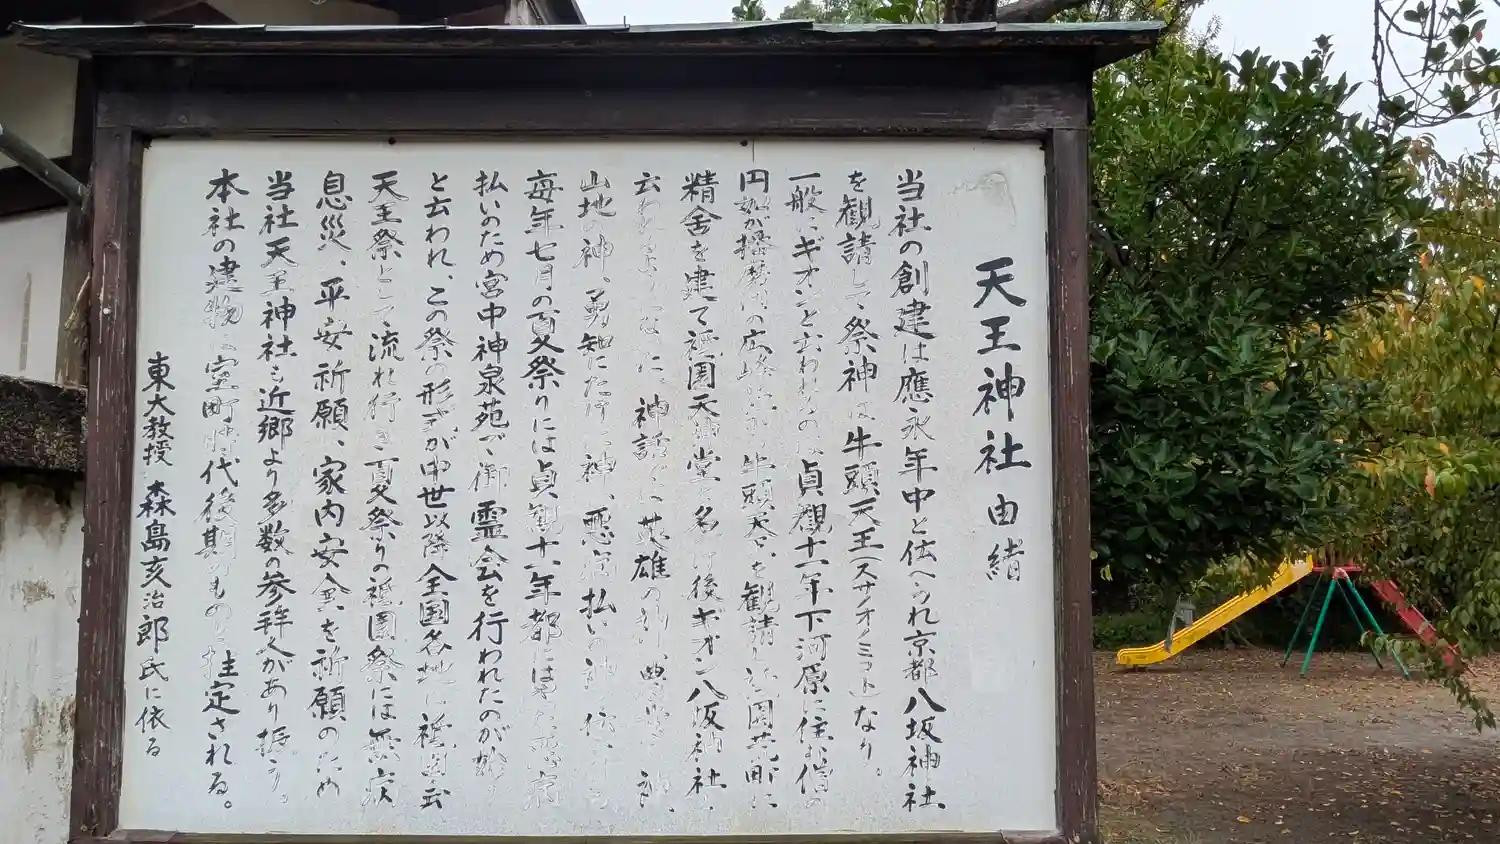 天王神社 由緒
当社の創建は應永年中と伝へられ京都八坂神社
を観請して祭神は牛頭天王(スサノオノミコト)なり。
一般にギオンと云われるのは貞観十一年下河原に住む僧の
円如が播磨国の広峰 牛頭天王を観請し祇園荒町に
精舎を建て祇園天神堂と名付け後ギオン八坂神社
云われるようになった。神話では英雄の
山地の神、勇知にたけた神、悪疫払いの神
毎年七月の夏祭りには貞観十一年都には 悪病
払いのため宮中神泉苑で御霊会を行われたのが始り
と云われ、この祭の形式が中世以降全国各地に祇園会
天王祭として流れ行き夏祭りの祇園祭には無病
息災、平安祈願、家内安全を祈願のため
当社天王神社も近郷より多数の参拝人があり賑う。
本社の建物は室町時代後期のものと推定される。
東大教授 森島亥治郎氏に依る